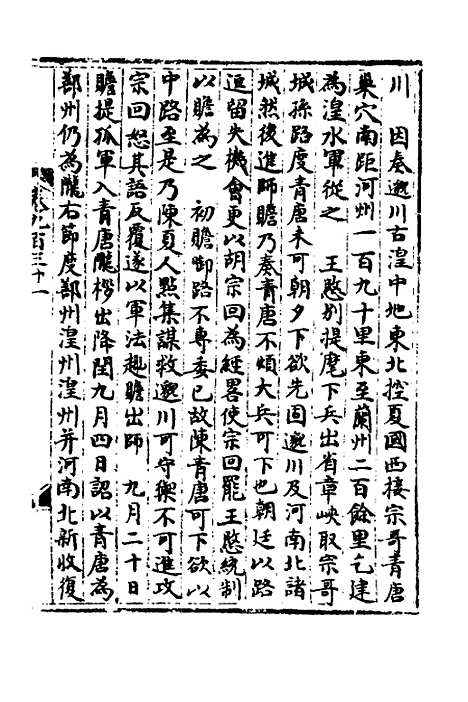 川　因奏邈川古湟中地東北控夏國西接宗哥青唐
巢穴南距河州一百九十里東至蘭州二百餘里乞建
為湟水軍從之　王愍別提麾下兵出省章峽取宗哥
城孫路度青唐未可朝夕下欲先固邈川及河南北諸
城然後進師贍乃奏青唐不煩大兵可下也朝廷以路
逗留失機會更以胡宗回為經畧使宗回罷王愍統制
以贍為之　初贍啣路不專委已故陳青唐可下欲以
中路至是乃陳夏人㸃集謀救邈川可守禦不可進攻
宗回怒其語反覆遂以軍法趣贍出師　九月二十日
贍提孤軍入青唐隴拶出降閏九月四日詔以青唐為
鄯州仍為隴右節度鄯州湟州湟州并河南北新收復